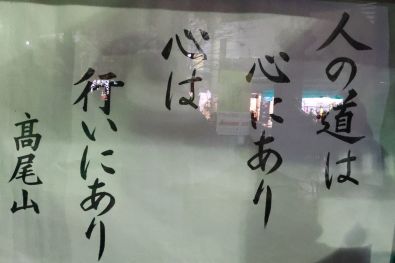 人の道は
心にあり
心は
行いにあり
髙尾山